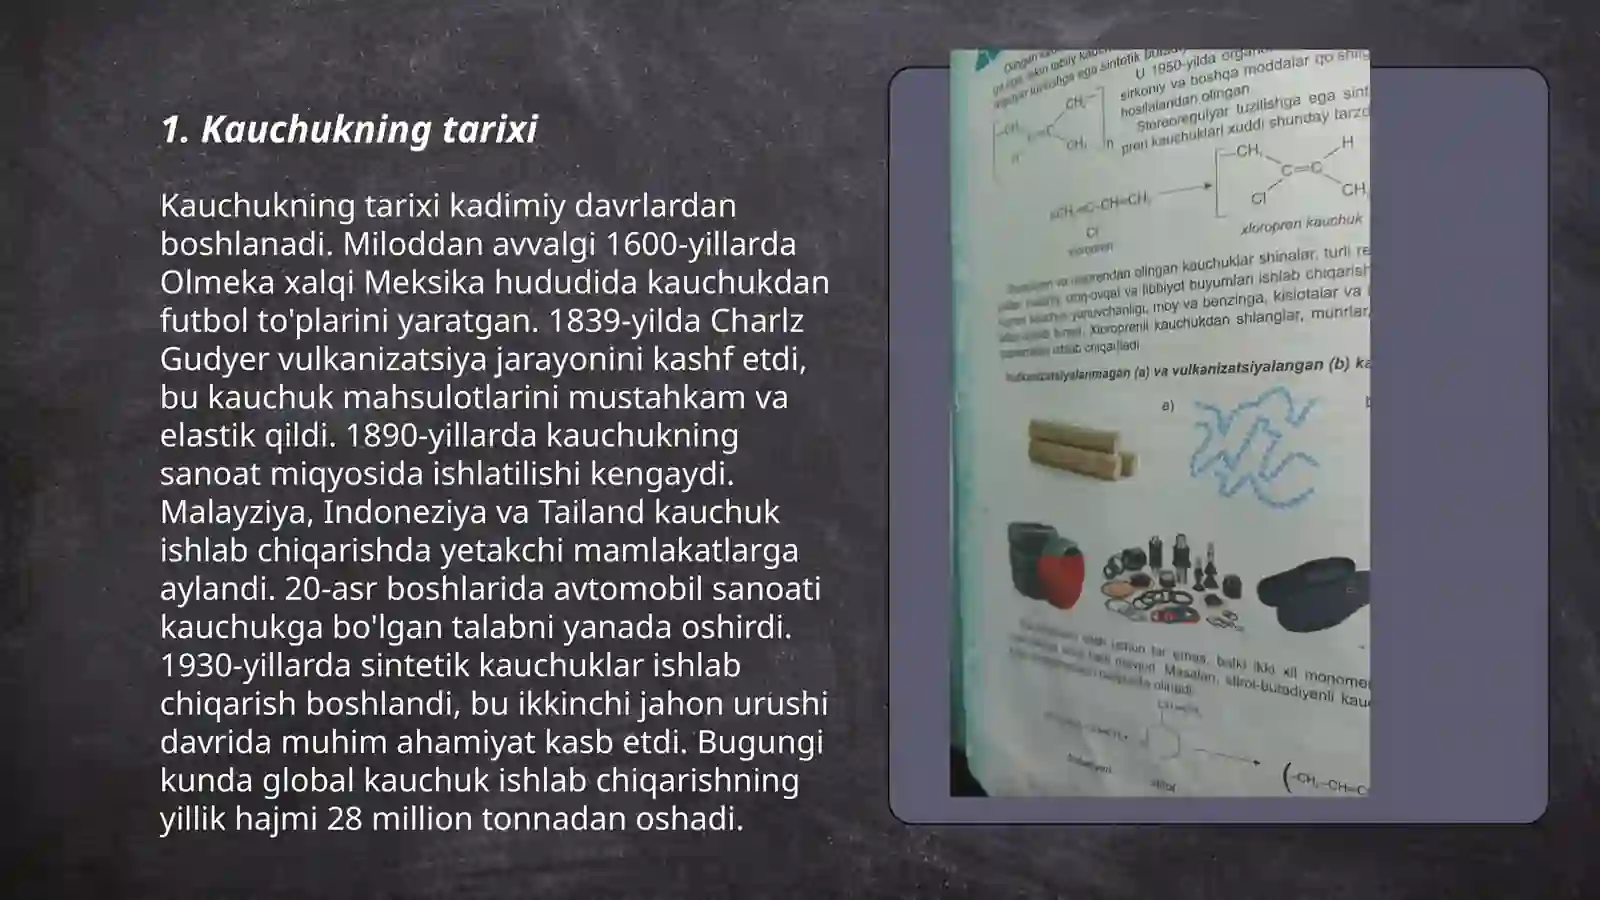 1. Kauchukning tarixi
Kauchukning tarixi kadimiy davrlardan
boshlanadi. Miloddan avvalgi 1600-yillarda
Olmeka xalqi Meksika hududida kauchukdan
futbol to'plarini yaratgan. 1839-yilda Charlz
Gudyer vulkanizatsiya jarayonini kashf etdi,
bu kauchuk mahsulotlarini mustahkam va
elastik qildi. 1890-yillarda kauchukning
sanoat miqyosida ishlatilishi kengaydi.
Malayziya, Indoneziya va Tailand kauchuk
ishlab chiqarishda yetakchi mamlakatlarga
aylandi. 20-asr boshlarida avtomobil sanoati
kauchukga bo'lgan talabni yanada oshirdi.
1930-yillarda sintetik kauchuklar ishlab
chiqarish boshlandi, bu ikkinchi jahon urushi
davrida muhim ahamiyat kasb etdi. Bugungi
kunda global kauchuk ishlab chiqarishning
yillik hajmi 28 million tonnadan oshadi.
U 1950-yilda
sirkoniy va boshqa moddalar
hosilalaridan olingan
Stereoregulyar tuzilishga ega
pren kauchuklari xuddi shunday
CH₂
n
CH₃
–CH₂
H
C=C
Cl
CH
Cl
xloropren kauchuk
olingan kauchuklar shinalar, turli
va tibbiyot buyumlari ishlab
moy va benzinga, kislotalar va
Xloroprenli kauchukdan shlanglar,
ishlab chiqariladi
(a) va vulkanizatsiyalangan (b)
a)
uchun bir emas, balki ikki xil
Masalan, stirol-butadiyenli
olinadi
stirol
(–CH₂–CH=C